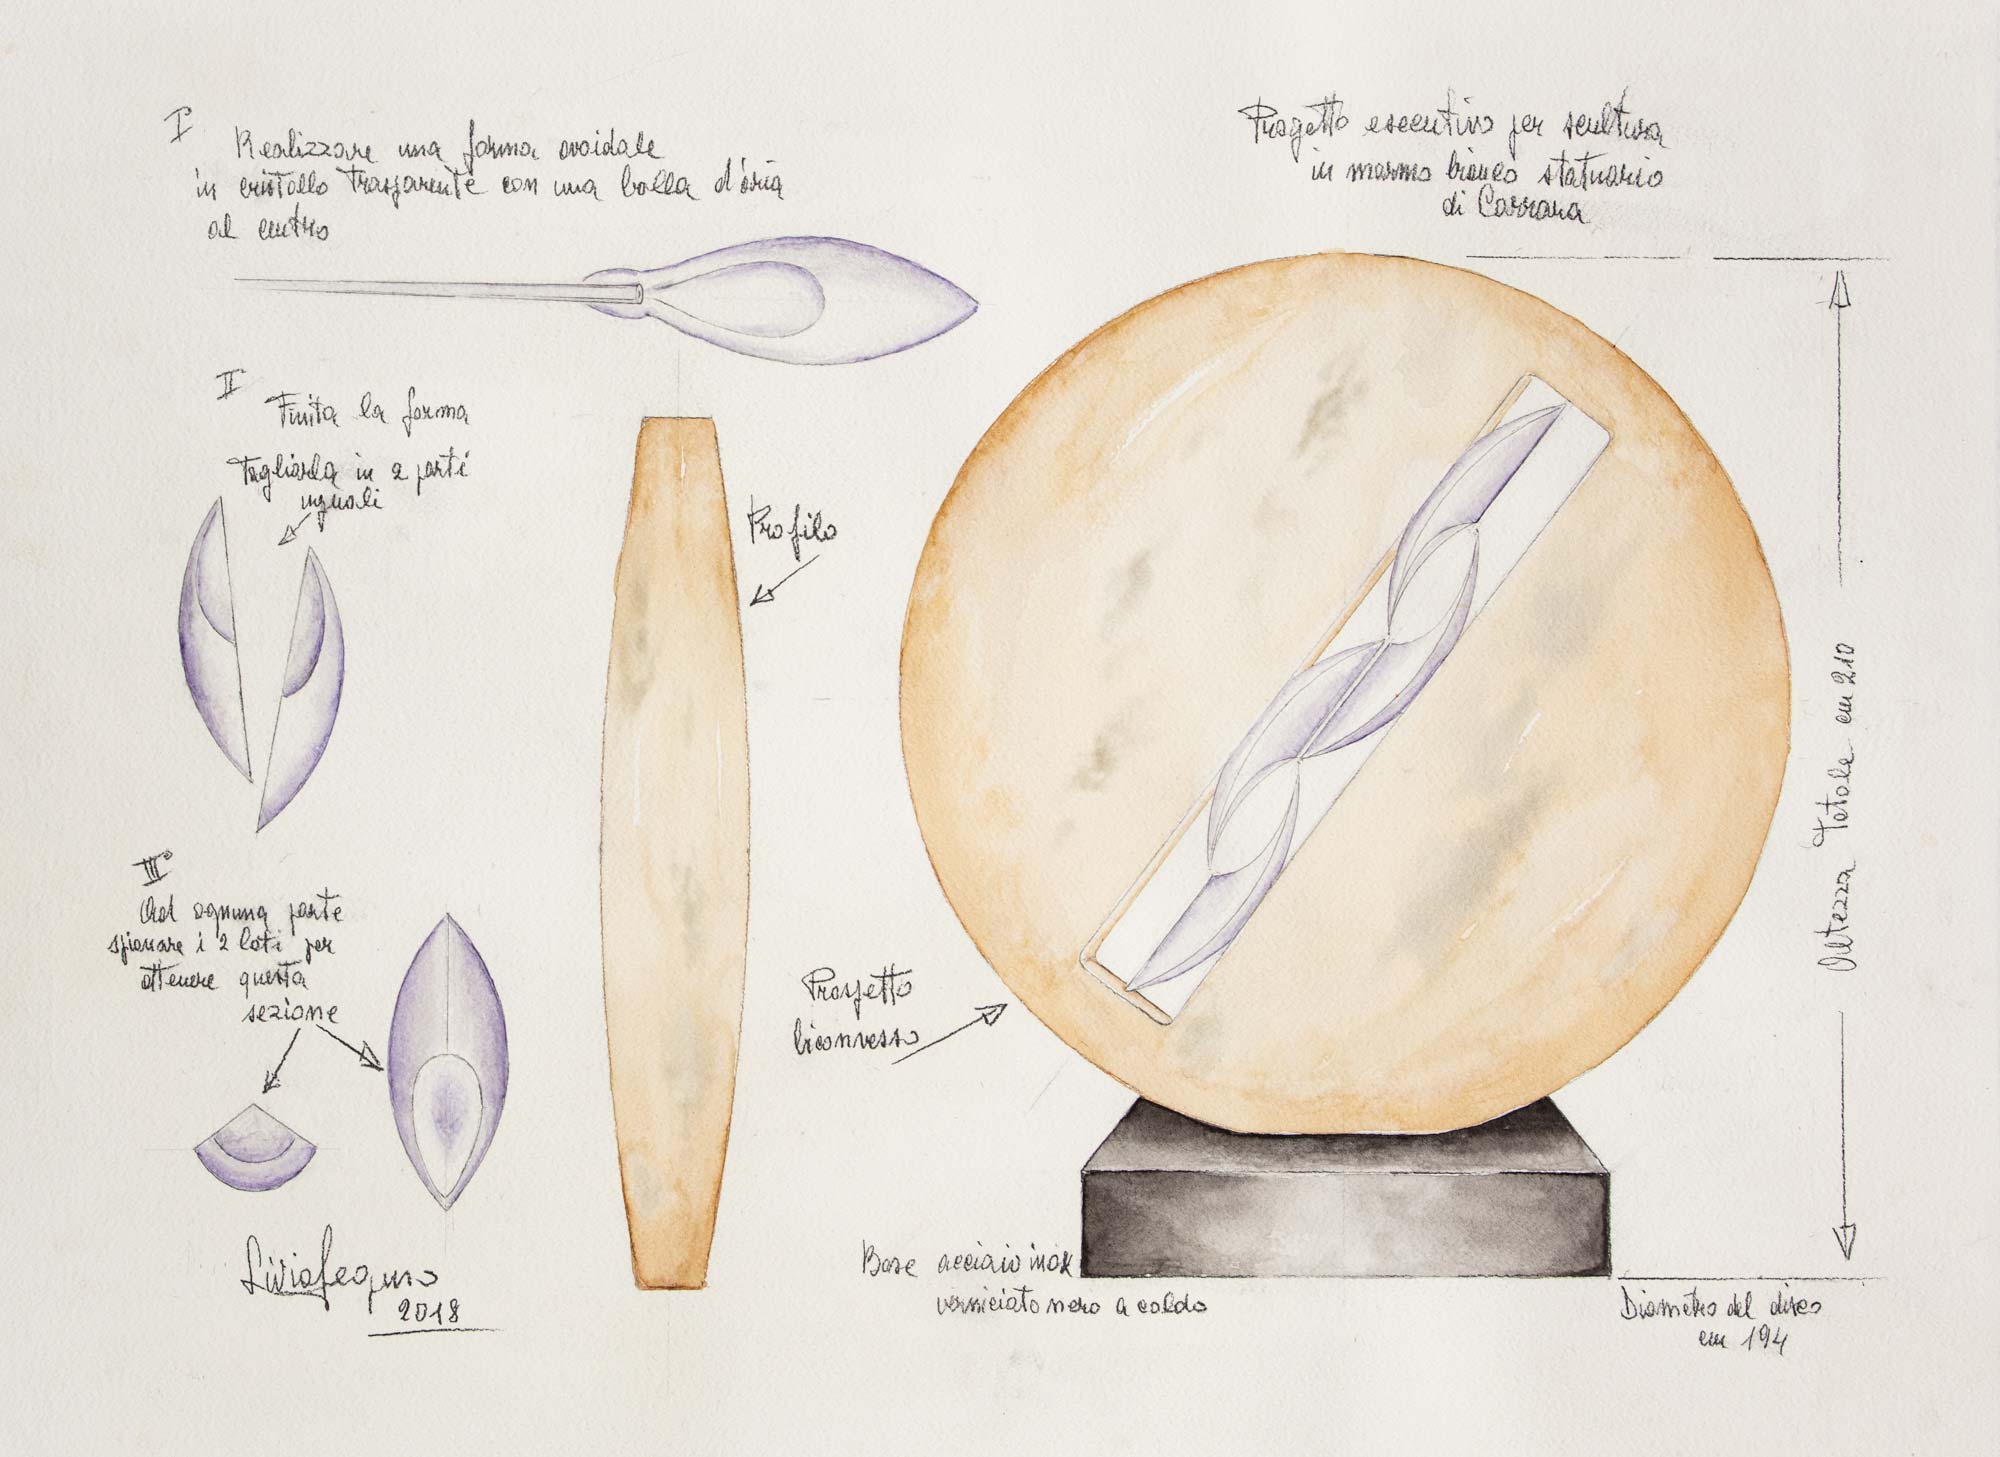 I°
Realizzare una forma ovoidale
in cristallo trasparente con una bolla d'aria
al centro
II°
Finita la forma
tagliarla in 2 parti
uguali
III°
Ad ognuna parte
spianare i 2 lati per
ottenere questa
sezione
Livio Seguso
2018
Profilo
Progetto esecutivo per scultura
in marmo bianco statuario
di Carrara
Progetto
biconvesso
Altezza Totale cm 210
Base acciaio inox
verniciato nero a caldo
Diametro del disco
cm 194